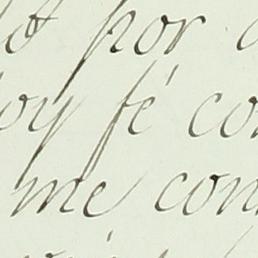 por
oy fé con
me con